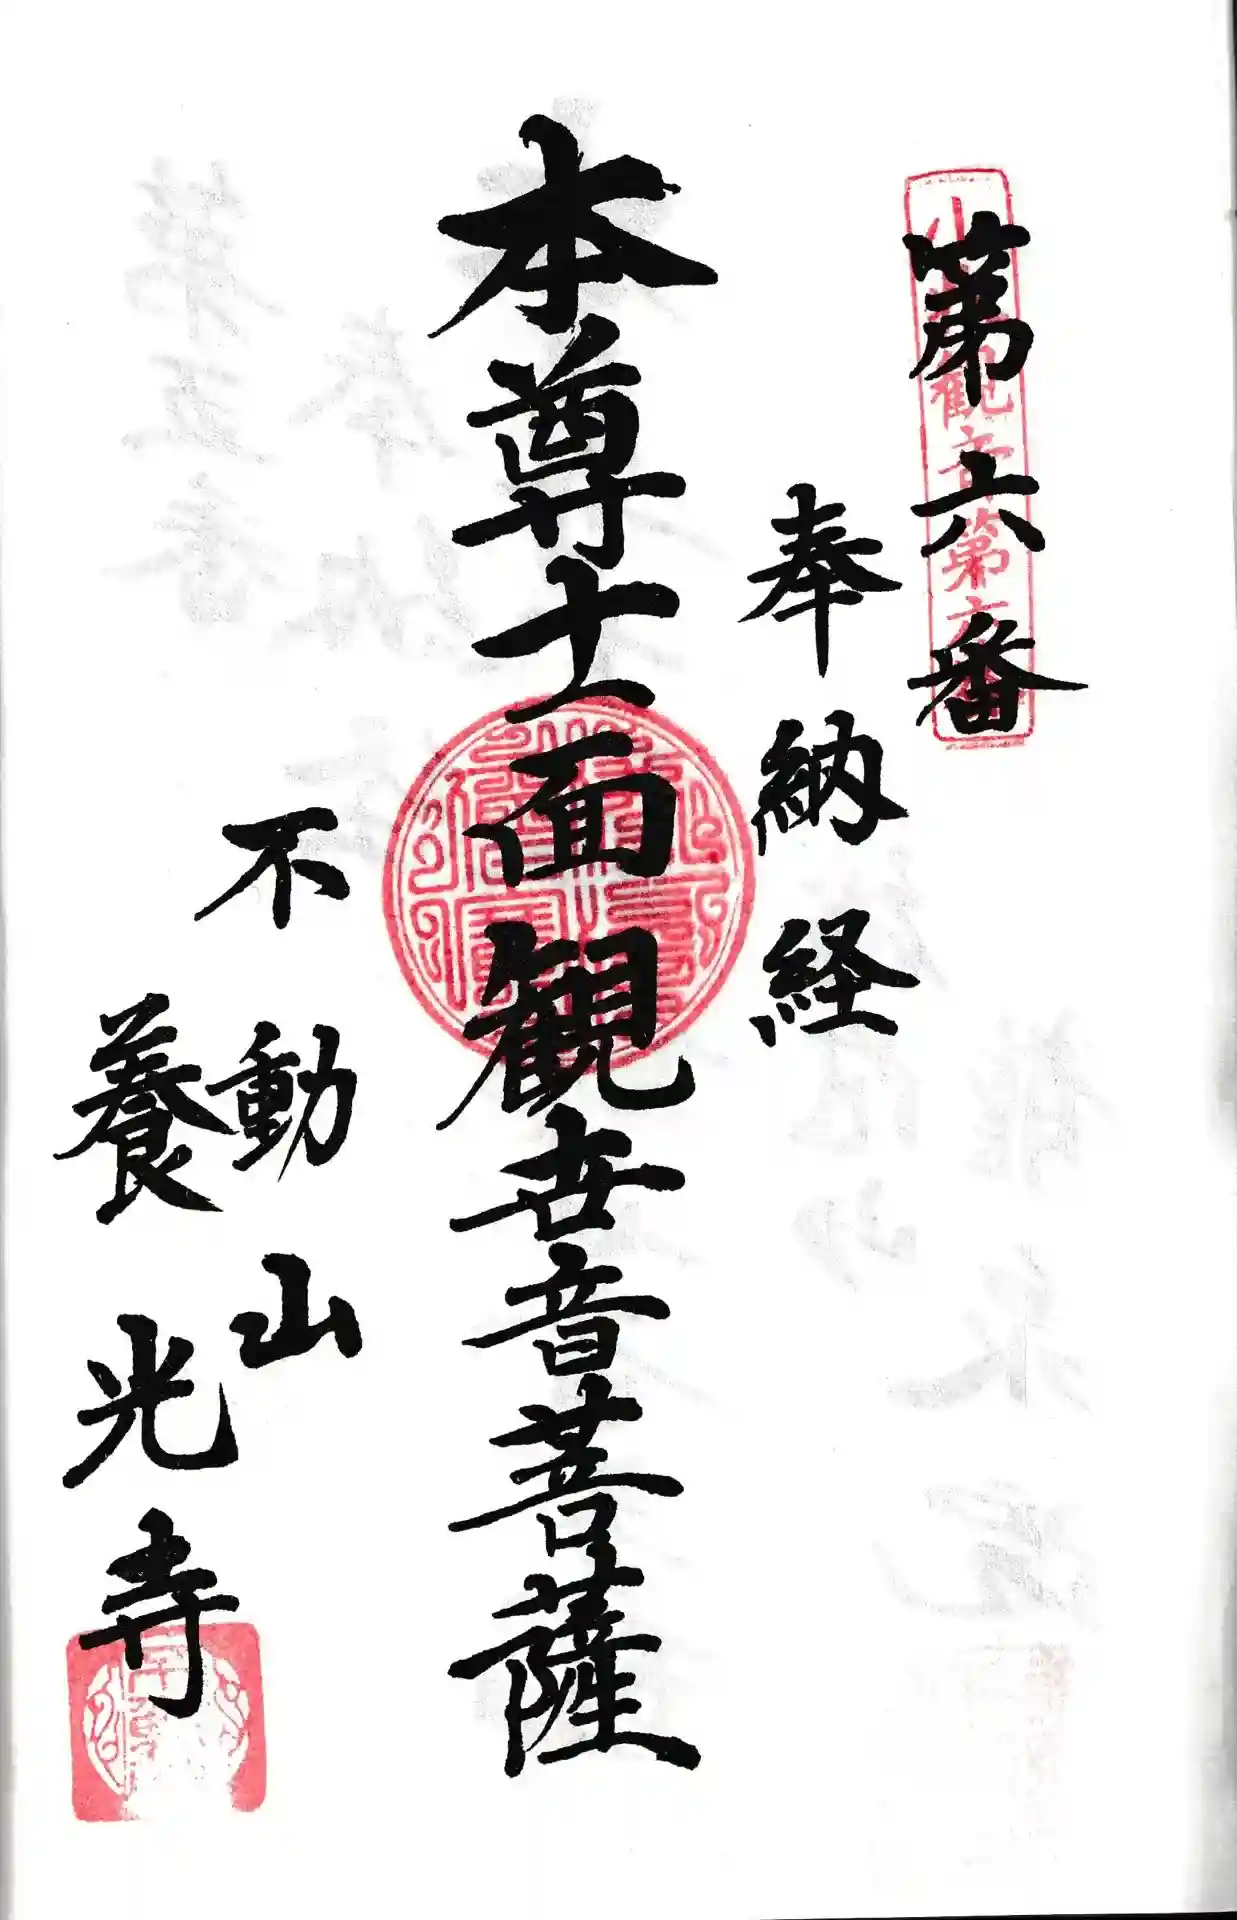 第六番
小 観音第六
奉納経
本尊十一面観世音菩薩
不動山
養光寺